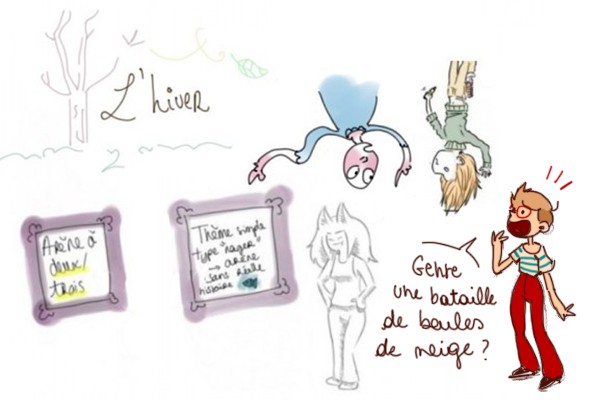 L'hiver
2
Arène à
deux/
trois
Thème simple
type "nager"
→ arène
sans réelle
histoire
Genre
une bataille
de boules
de neige ?